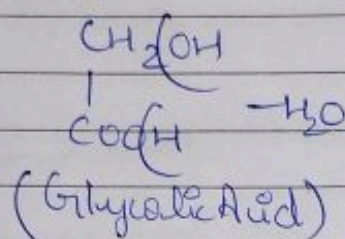 CH₂(OH
|
COO(H -H₂O
(Glycolic Acid)